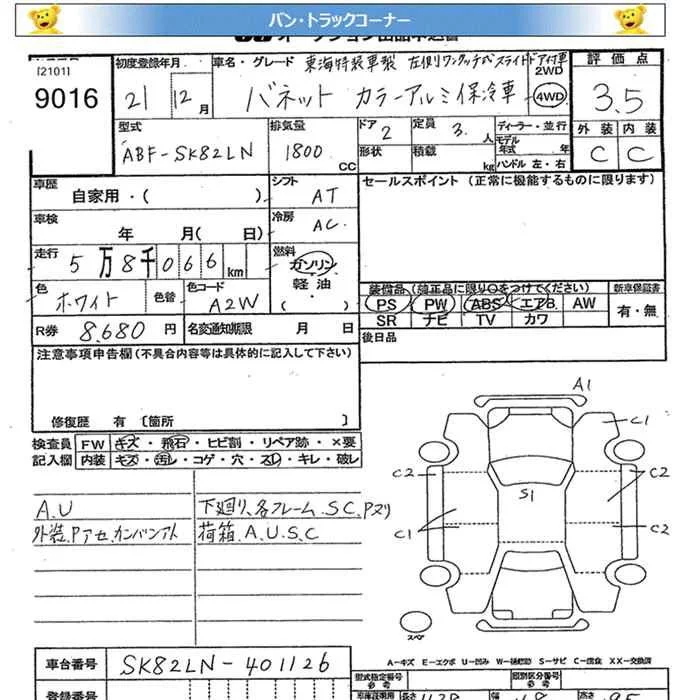 バン・トラックコーナー
[2101]
9016
初度登録年月
21 12月
車名・グレード 東海特装車製 左側リワンタッチ式スライドドア付車
バネット カラーアルミ保冷車
2WD
4WD
評価点
3.5
外装 内装
C C
型式
ABF-SK82LN
排気量
1800 CC
ドア 2
定員 3 人
ディーラー・並行
形状
積載 kg
モデル年式 年
ハンドル 左・右
車歴 自家用・( )
シフト AT
セールスポイント (正常に機能するものに限ります)
車検 年 月( 日)
冷房 AC
走行 5万8千066km
燃料 ガソリン
軽油
( )
色 ホワイト 色替
色コード A2W
装備品 (純正品に限り○をつけてください)
新車保証書
PS PW ABS エアB AW
有・無
SR ナビ TV カワ
R券 8,680円
名変通知期限 月 日
後日品
注意事項申告欄 (不具合内容等は具体的に記入して下さい)
修復歴 有 〔箇所 〕
検査員 FW キズ・飛石・ヒビ割・リペア跡・×要
記入欄 内装 キズ・汚レ・コゲ・穴・スレ・キレ・破レ
A.U
外装.Pアセ.カンバンアト
下廻り、各フレーム.SC.Pヌリ
荷箱.A.U.S.C
A1
C1
C2
C2
S1
C1
C2
スペア
A-キズ E-エクボ U-凹み W-補修跡 S-サビ C-腐食 XX-交換済
車台番号 SK82LN-401126
型式指定番号
参考
類別区分番号
参考
登録番号